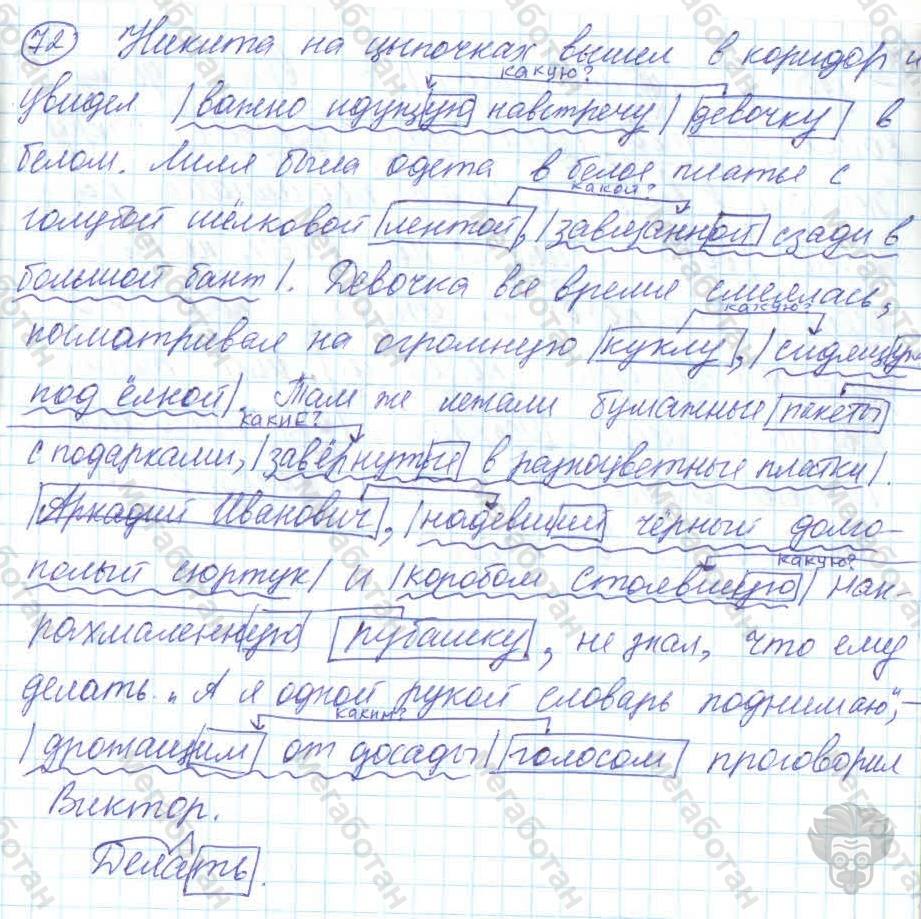 72 Никита на цыпочках вышел в коридор и
какую?
увидел |важно идущую навстречу| девочку в
белом. Лиля была одета в белое платье с
какой?
голубой шёлковой лентой, |завязанной сзади в
большой бант|. Девочка все время смеялась,
какую?
посматривая на огромную куклу, |сидящую
под ёлкой|. Там же лежали бумажные пакеты
какие?
с подарками, |завёрнутые в разноцветные платки|.
Аркадий Иванович, |надевший чёрный долго-
какую?
полый сюртук| и |коробом стоявшую| нак-
рахмаленную рубашку, не знал, что ему
делать. „А я одной рукой словарь поднимаю",-
каким?
|дрожащим от досады| голосом проговорил
Виктор.
Делать.
Мегаботан